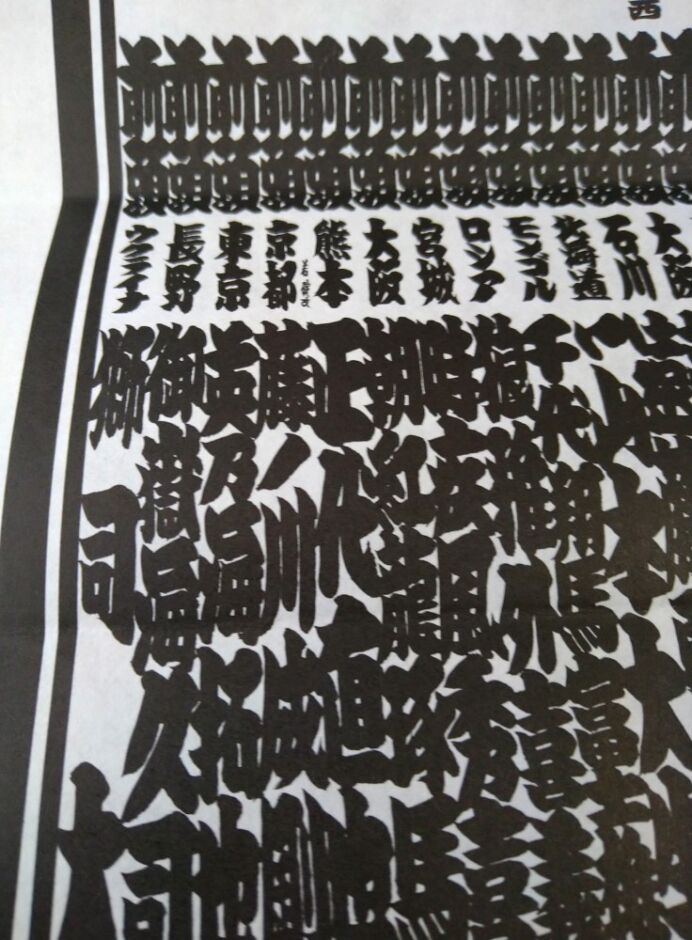 西
前頭 大阪
前頭 石川
前頭 北海道 一山本 大
前頭 モンゴル 千代翔馬 富士
前頭 ロシア 狼雅 外喜
前頭 宮城 時疾風 秀喜
前頭 大阪 朝紅龍 琢馬
前頭 熊本 正代 直也
前頭 京都 藤ノ川 成剛
前頭 東京 英乃海 拓也
前頭 長野 御嶽海 久司
前頭 ウクライナ 獅司 大